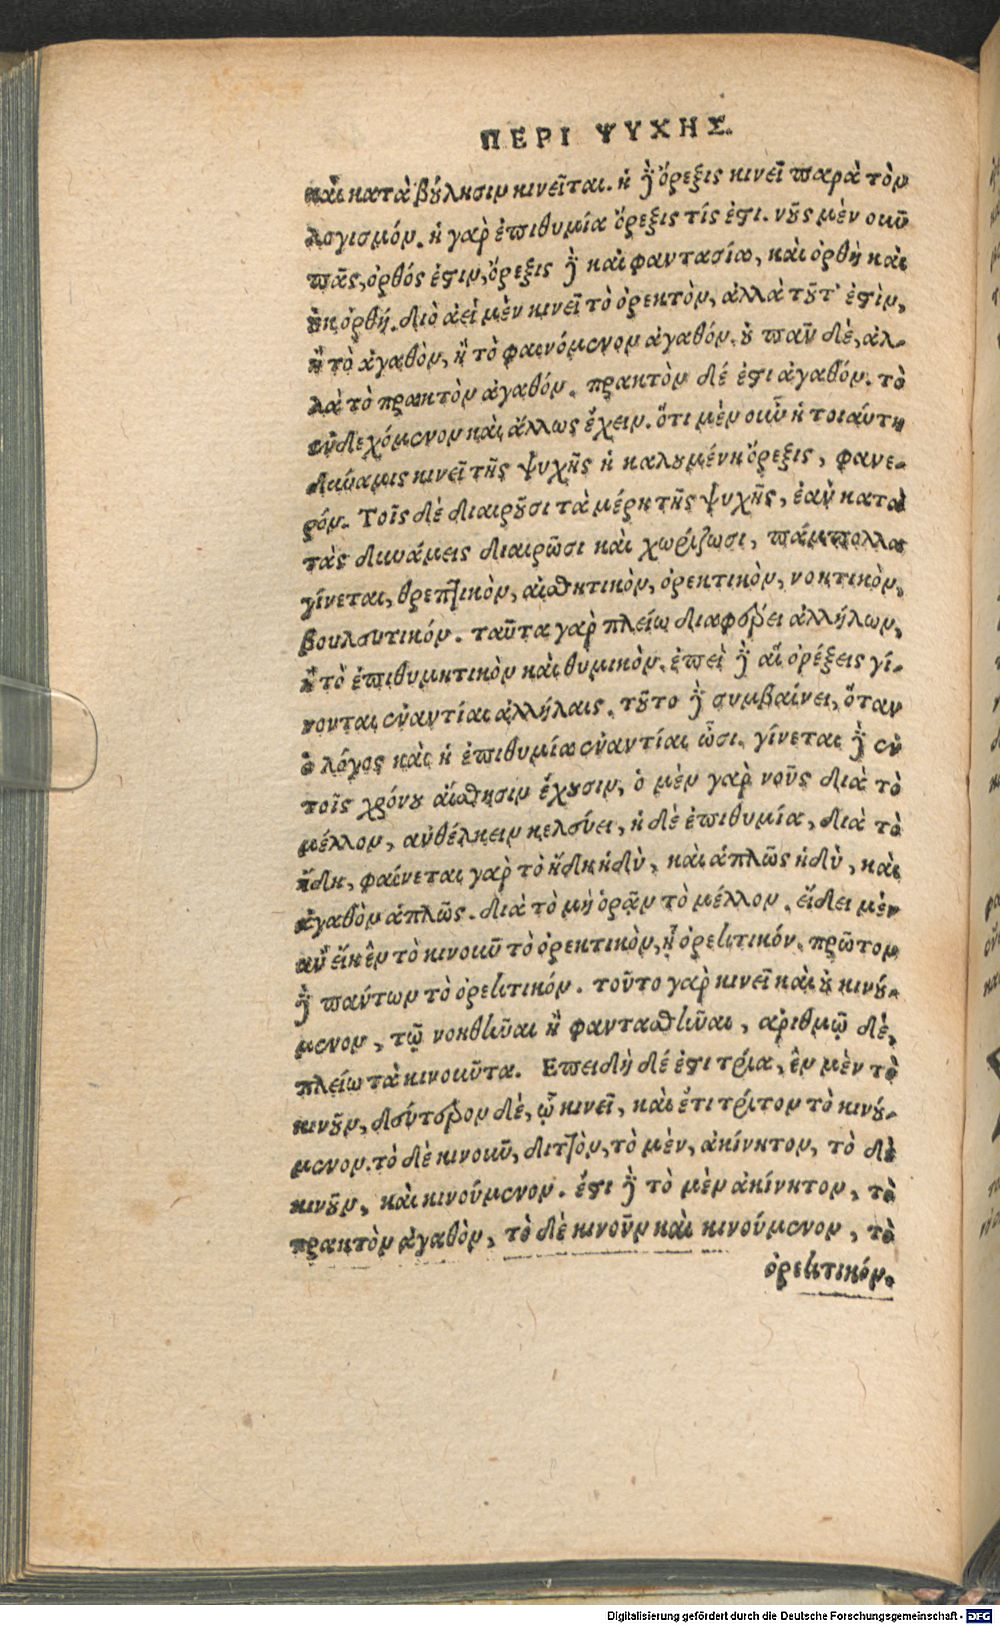 ΠΕΡΙ ΨΥΧΗΣ.
καὶ κατὰ βούλησιν κινεῖται. ἡ δὲ ὄρεξις κινεῖ παρὰ τὸν
λογισμόν. ἡ γὰρ ἐπιθυμία ὄρεξις τίς ἐστι. νοῦς μὲν οὖν
πᾶς, ὀρθός ἐστιν, ὄρεξις δὲ καὶ φαντασία, καὶ ὀρθὴ καὶ
οὐκ ὀρθή. διὸ ἀεὶ μὲν κινεῖ τὸ ὀρεκτὸν, ἀλλὰ τοῦτ' ἐστὶν,
ἢ τὸ ἀγαθὸν, ἢ τὸ φαινόμενον ἀγαθόν. οὐ πᾶν δὲ, ἀλ-
λὰ τὸ πρακτὸν ἀγαθόν. πρακτὸν δέ ἐστι ἀγαθόν. τὸ
ἐνδεχόμενον καὶ ἄλλως ἔχειν. ὅτι μὲν οὖν ἡ τοιαύτη
δύναμις κινεῖ τῆς ψυχῆς ἡ καλουμένη ὄρεξις, φανε-
ρόν. Τοῖς δὲ διαιροῦσι τὰ μέρη τῆς ψυχῆς, ἐὰν κατὰ
τὰς δυνάμεις διαιρῶσι καὶ χωρίζωσι, πάμπολλα
γίνεται, θρεπτικὸν, αἰσθητικὸν, ὀρεκτικὸν, νοητικὸν,
βουλευτικόν. ταῦτα γὰρ πλείω διαφέρει ἀλλήλων,
ἢ τὸ ἐπιθυμητικὸν καὶ θυμικὸν. ἐπεὶ δὲ αἱ ὀρέξεις γί-
νονται ἐναντίαι ἀλλήλαις. τοῦτο δὲ συμβαίνει, ὅταν
ὁ λόγος καὶ ἡ ἐπιθυμία ἐναντίαι ὦσι. γίνεται δὲ ἐν
τοῖς χρόνου αἴσθησιν ἔχουσιν, ὁ μὲν γὰρ νοῦς διὰ τὸ
μέλλον, ἀνθέλκειν κελεύει, ἡ δὲ ἐπιθυμία, διὰ τὸ
ἤδη, φαίνεται γὰρ τὸ ἤδη ἡδὺ, καὶ ἁπλῶς ἡδὺ, καὶ
ἀγαθὸν ἁπλῶς. διὰ τὸ μὴ ὁρᾷν τὸ μέλλον. εἴδει μὲν
ἂν εἴη ἓν τὸ κινοῦν τὸ ὀρεκτικὸν, ᾗ ὀρεκτικόν. πρῶτον
δὲ πάντων τὸ ὀρεκτικόν. τοῦτο γὰρ κινεῖ καὶ οὐ κινού-
μενον, τῷ νοηθῆναι ἢ φαντασθῆναι, ἀριθμῷ δὲ,
πλείω τὰ κινοῦντα. Επειδὴ δέ ἐστι τρία, ἓν μὲν τὸ
κινοῦν, δεύτερον δὲ, ᾧ κινεῖ, καὶ ἔτι τρίτον τὸ κινού-
μενον. τὸ δὲ κινοῦν, διττὸν, τὸ μὲν, ἀκίνητον, τὸ δὲ
κινοῦν, καὶ κινούμενον. ἔστι δὲ τὸ μὲν ἀκίνητον, τὸ
πρακτὸν ἀγαθὸν, τὸ δὲ κινοῦν καὶ κινούμενον, τὸ
ὀρεκτικόν.
Digitalisierung gefördert durch die Deutsche Forschungsgemeinschaft - DFG